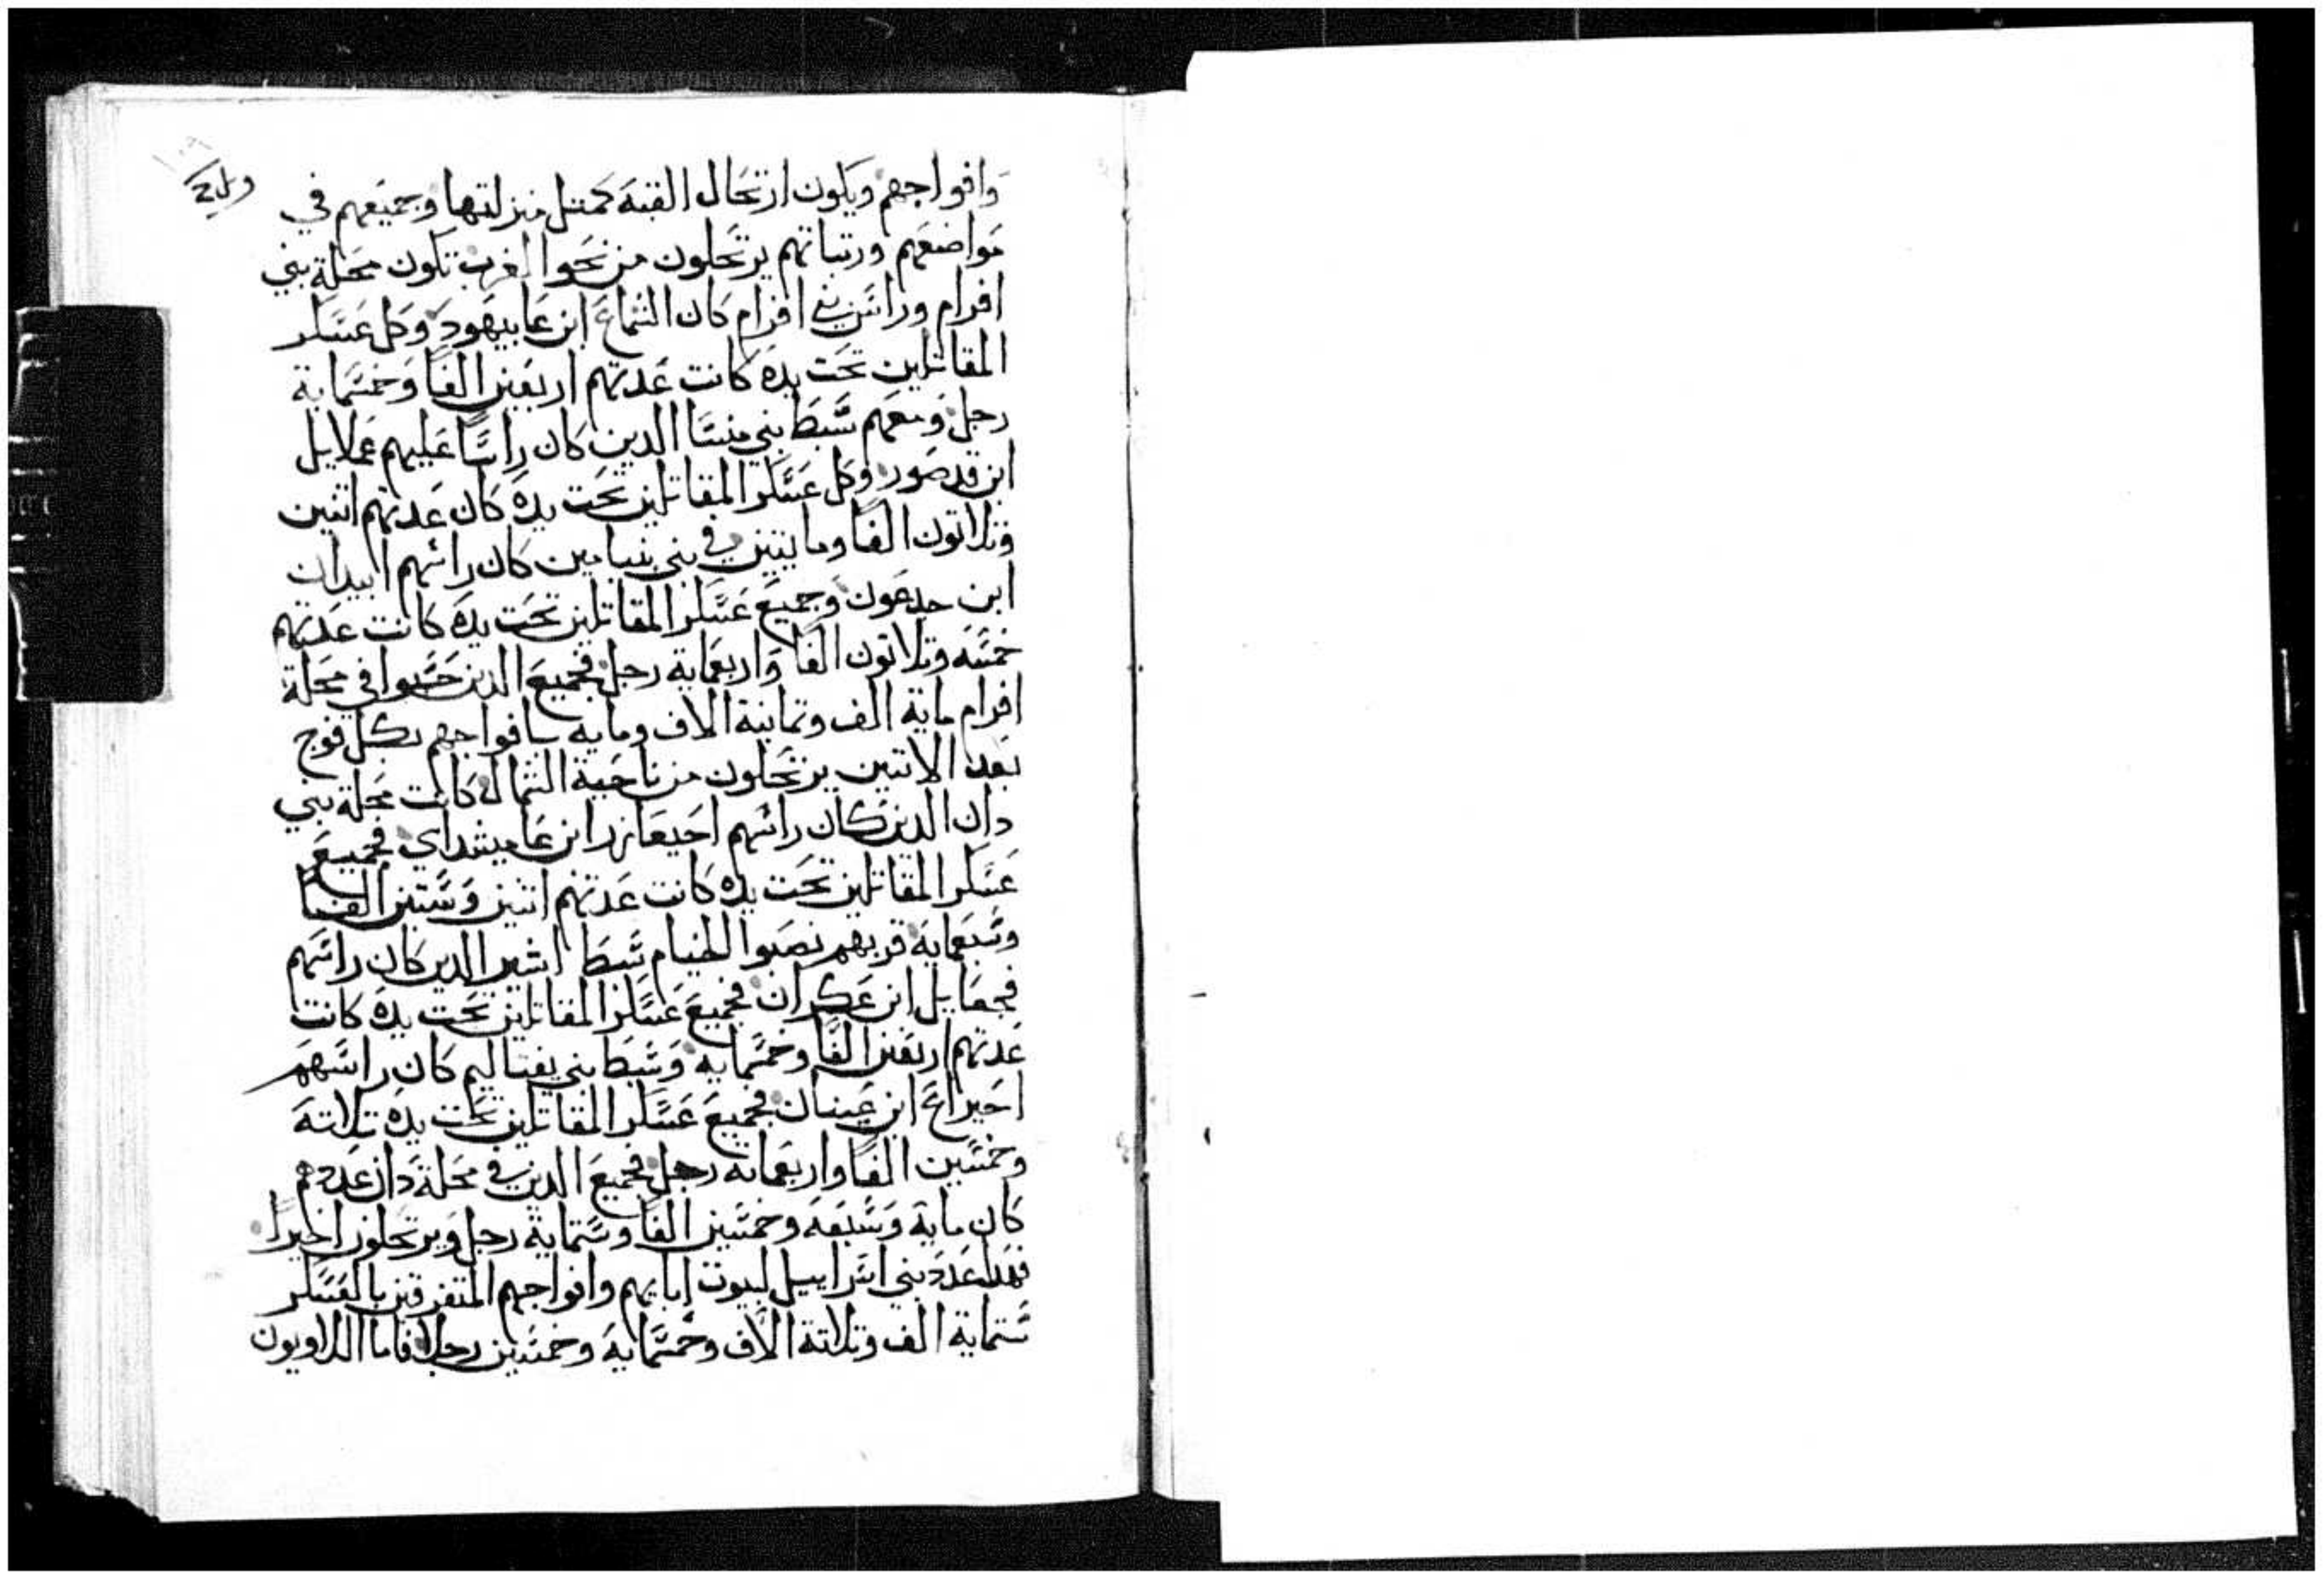 وافواجهم ويكون ارتحال القبة كمتل منزلتها وجميعهم في
مواضعهم ورتباتهم يرتحلون من نحوا الغرب تكون محلة بني
افرام وراس بني افرام كان الشماع ابن عاميهود وكل عسكر
المقاتلين تحت يده كانت عدتهم اربعين الفا وخمسماية
رجل ومعهم سبط بني منسا الدين كان راسا عليهم عملاييل
ابن فدصور وكل عسكر المقاتلين تحت يده كان عدتهم اتنين
وتلاتون الفا ومايتين في بني بنيامين كان راسهم ابيدان
ابن جدعون وجميع عسكر المقاتلين تحت يده كانت عدتهم
خمسه وتلاتون الفا واربعماية رجل فجميع الدين حسبوا في محلة
افرام ماية الف وتمانية الاف وماية بافواجهم بكل فوج
بعد الاتنين يرتحلون من ناحية الشمال كانت محلة بني
دان الدين كان راسهم احيعازر ابن عاميشداي فجميع
عسكر المقاتلين تحت يده كانت عدتهم اتنين وستين الفا
وسبعماية قربهم نصبوا الخيام سبط اشير الدين كان راسهم
فجعاييل ابن عكران فجميع عسكر المقاتلين تحت يده كانت
عدتهم اربعين الفا وخمسماية وسبط بني يفتاليم كان راسهم
احيراع ابن عينان فجميع عسكر المقاتلين تحت يده تلاته
وخمسين الفا واربعماية رجل فجميع الدين في محلة دان عددهم
كان ماية وسبعه وخمسين الفا وستماية رجل ويرتحلون اخيرا
فهدا عدد بني اسراييل لبيوت ابايهم وافواجهم المتفرقين بالعسكر
ستماية الف وتلاتة الاف وخمسماية وخمسين رجلا فاما اللاويون